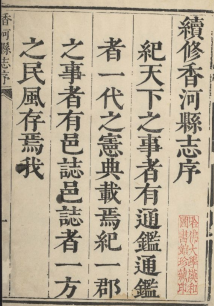 續修香河縣志序
紀天下之事者有通鑑通鑑
者一代之憲典載焉紀一郡
之事者有邑誌邑誌者一方
之民風存焉我
香河縣志序